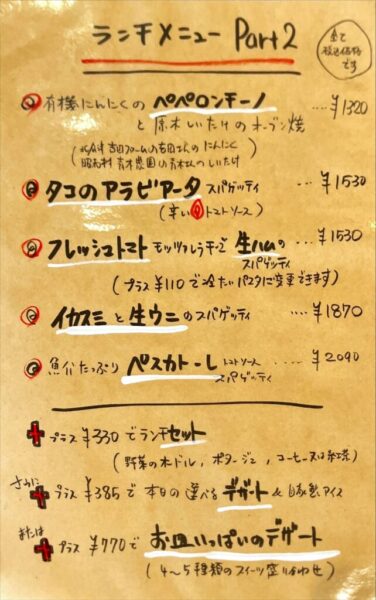 ランチメニュー Part2
全て税込価格です
有機にんにくの ペペロンチーノ ....¥1320
と原木しいたけのオーブン焼
昭和村 青木農園の青木さんのしいたけ)
タコのアラビアータ スパゲッティ ...¥1530
(辛いトマトソース)
フレッシュトマト モッツァレラチーズと 生ハムの ..¥1530
スパゲッティ
(プラス¥110で冷たいパスタに変更できます)
イカスミと生ウニのスパゲッティ ....¥1870
魚介たっぷり ペスカトーレ トマトソース ....¥2090
スパゲッティ
+ プラス ¥330でランチセット
(野菜のオードル, ポタージュ, コーヒー又は紅茶)
さらに
+ プラス ¥385で 本日の選べるデザート & 自家製アイス
または
+ プラス ¥770で お皿いっぱいのデザート
(4〜5種類のスイーツ盛り合わせ)